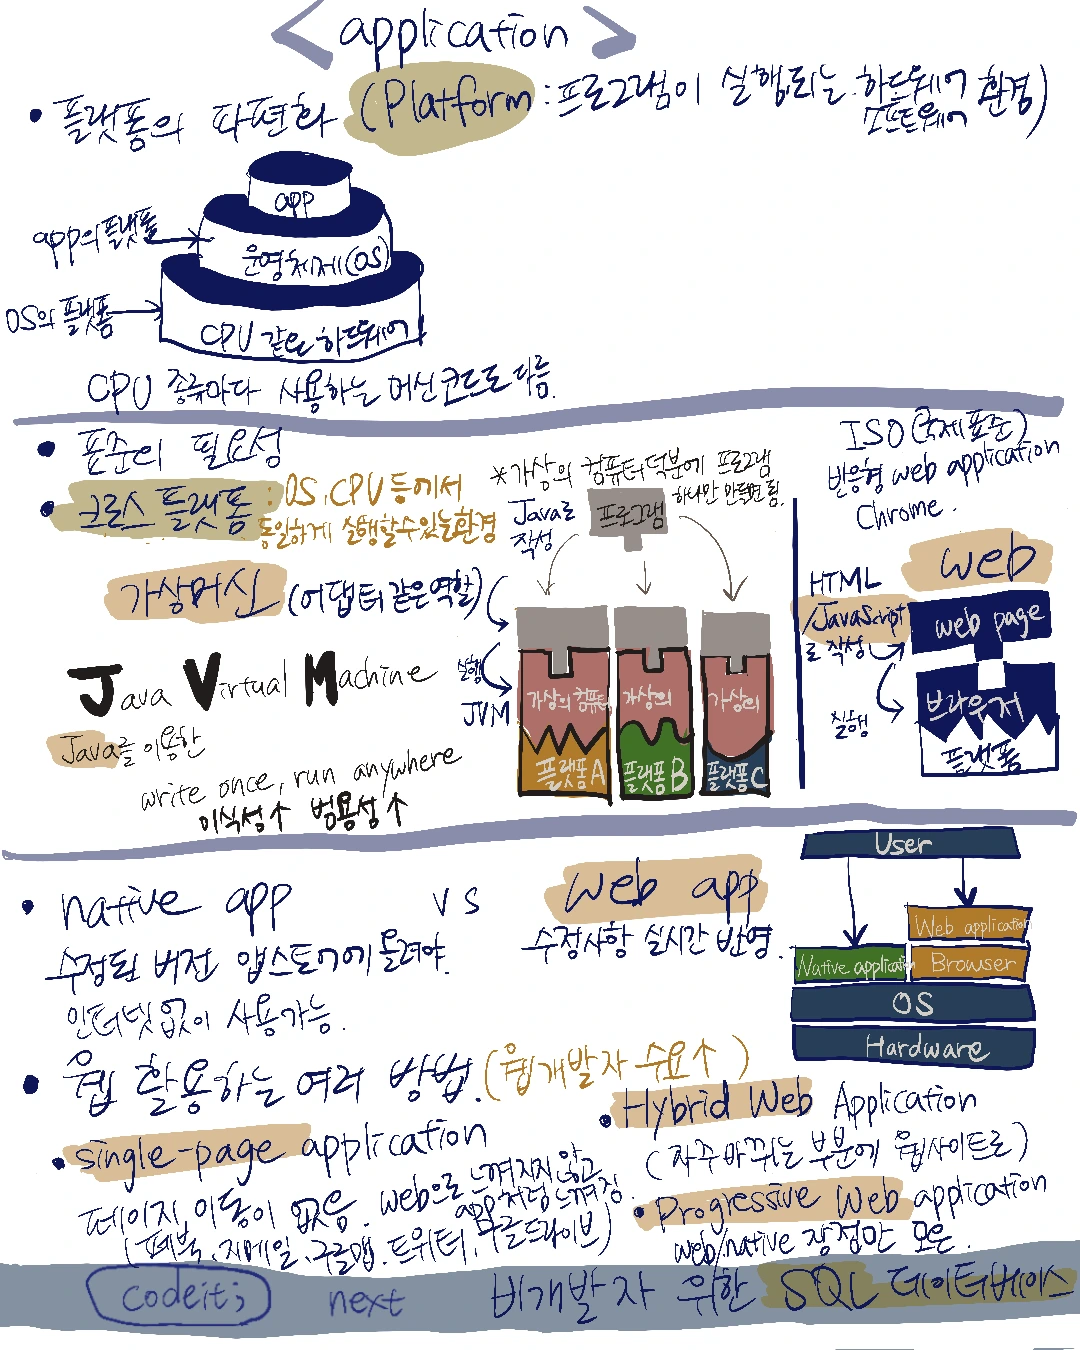 < application >
• 플랫폼의 파편화 (Platform : 프로그램이 실행되는 하드웨어 소프트웨어 환경)
app
app의 플랫폼
운영체제(OS)
OS의 플랫폼
CPU 같은 하드웨어
CPU 종류마다 사용하는 머신코드도 다름.
• 표준의 필요성
• 크로스 플랫폼 : OS, CPU 등에서
동일하게 실행할 수 있는 환경
가상머신 (어댑터 같은 역할)
Java Virtual Machine
Java를 이용한
write once, run anywhere
이식성↑ 범용성↑
*가상의 컴퓨터 덕분에 프로그램
하나만 만들면 됨.
Java로
작성
프로그램
실행
JVM
가상의 컴퓨터
가상의
가상의
플랫폼A
플랫폼B
플랫폼C
ISO (국제표준)
반응형 web application
Chrome.
web
HTML
/JavaScript
로 작성
web page
실행
브라우저
플랫폼
• native app vs web app
수정된 버전 앱스토어에 올려야.
인터넷 없이 사용가능.
수정사항 실시간 반영.
User
Web application
Native application
Browser
OS
Hardware
• 웹 활용하는 여러 방법. (웹개발자 수요↑)
• single-page application
페이지 이동이 없음. web으로 느껴지지 않고
app처럼 느껴짐.
(페북, 지메일, 구글맵, 트위터, 구글드라이브)
• Hybrid Web Application
(자주 바뀌는 부분에 웹사이트로)
• Progressive Web application
web/native 장점만 모은.
codeit;
next
비개발자 위한 SQL 데이터베이스